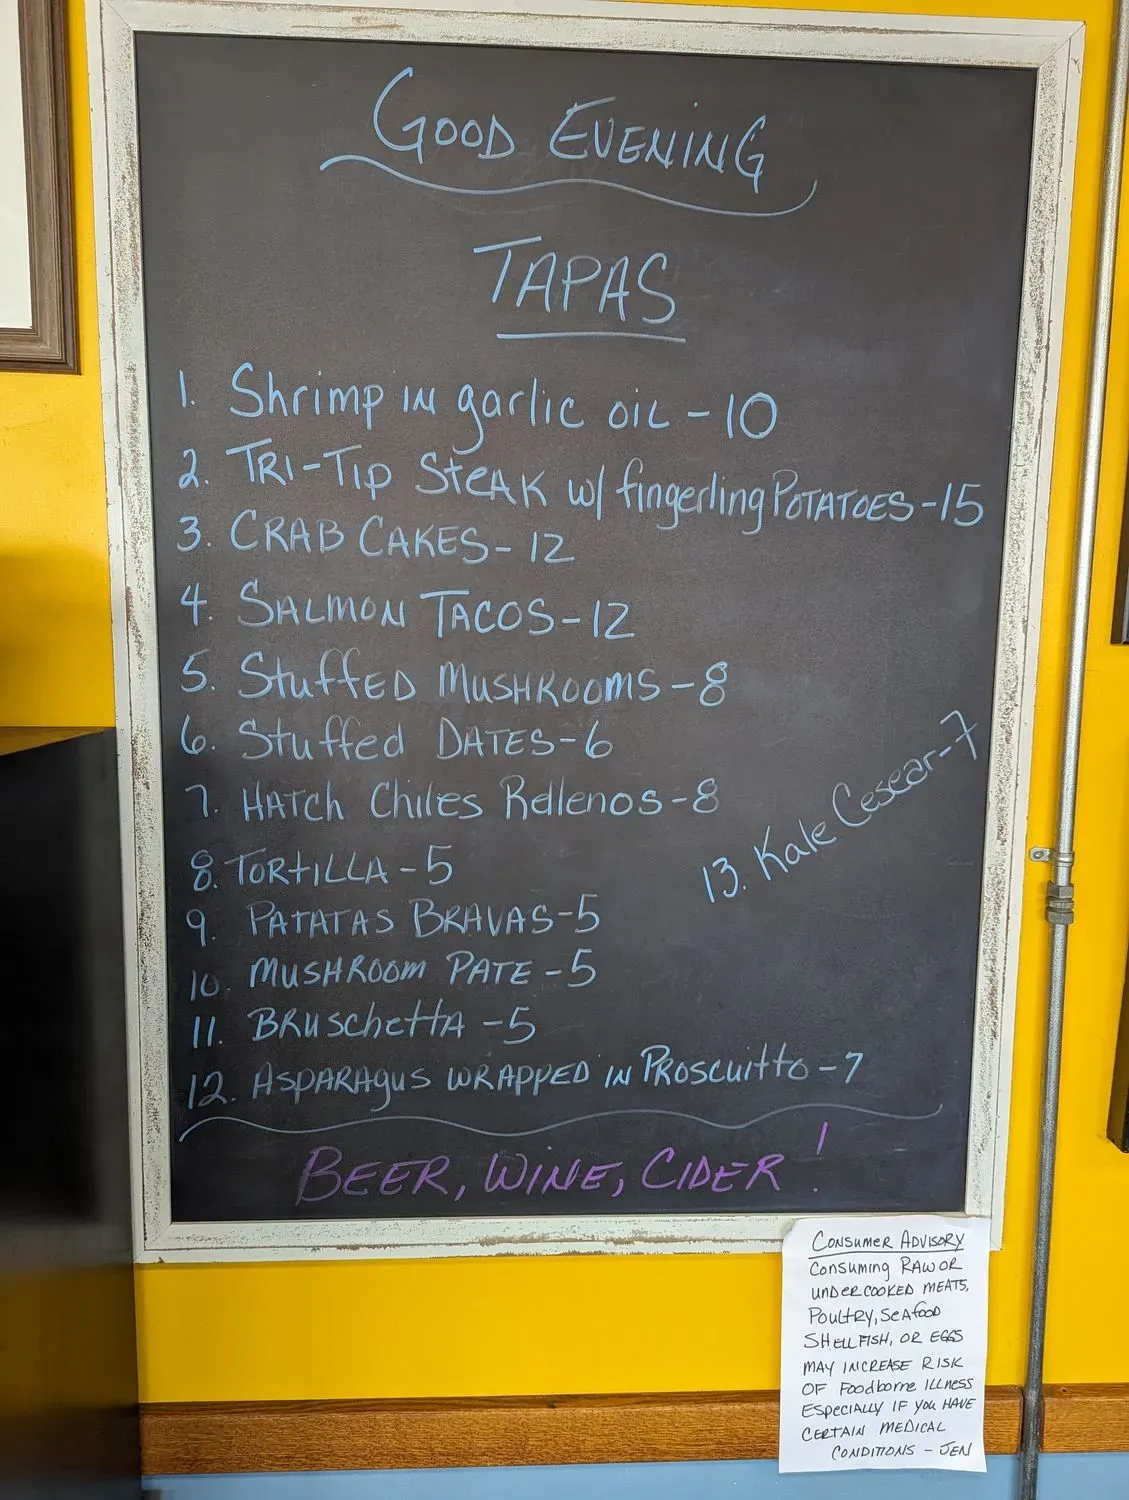 GOOD EVENING
TAPAS
1. Shrimp IN garlic OIL - 10
2. TRI-TIP STEAK w/ fingerling POTATOES - 15
3. CRAB CAKES - 12
4. SALMON TACOS - 12
5. StuffED MUSHROOMS - 8
6. Stuffed DATES - 6
7. HATCH Chiles Rellenos - 8
8. TORtILLA - 5
9. PATATAS BRAVAS - 5
10. MUSHROOM PATE - 5
11. BRUSchettA - 5
12. ASPARAgus WRAPPED IN PROSCuitto - 7
13. Kale Cesear - 7
BEER, WINE, CIDER!
CONSUMER ADVISORY
CONSUMING RAW OR
UNDERCOOKED MEATS,
POULTRY, SEAFOOD
SHELLFISH, OR EGGS
MAY INCREASE RISK
OF FOODBORNE ILLNESS
ESPECIALLY IF YOU HAVE
CERTAIN MEDICAL
CONDITIONS - JEN